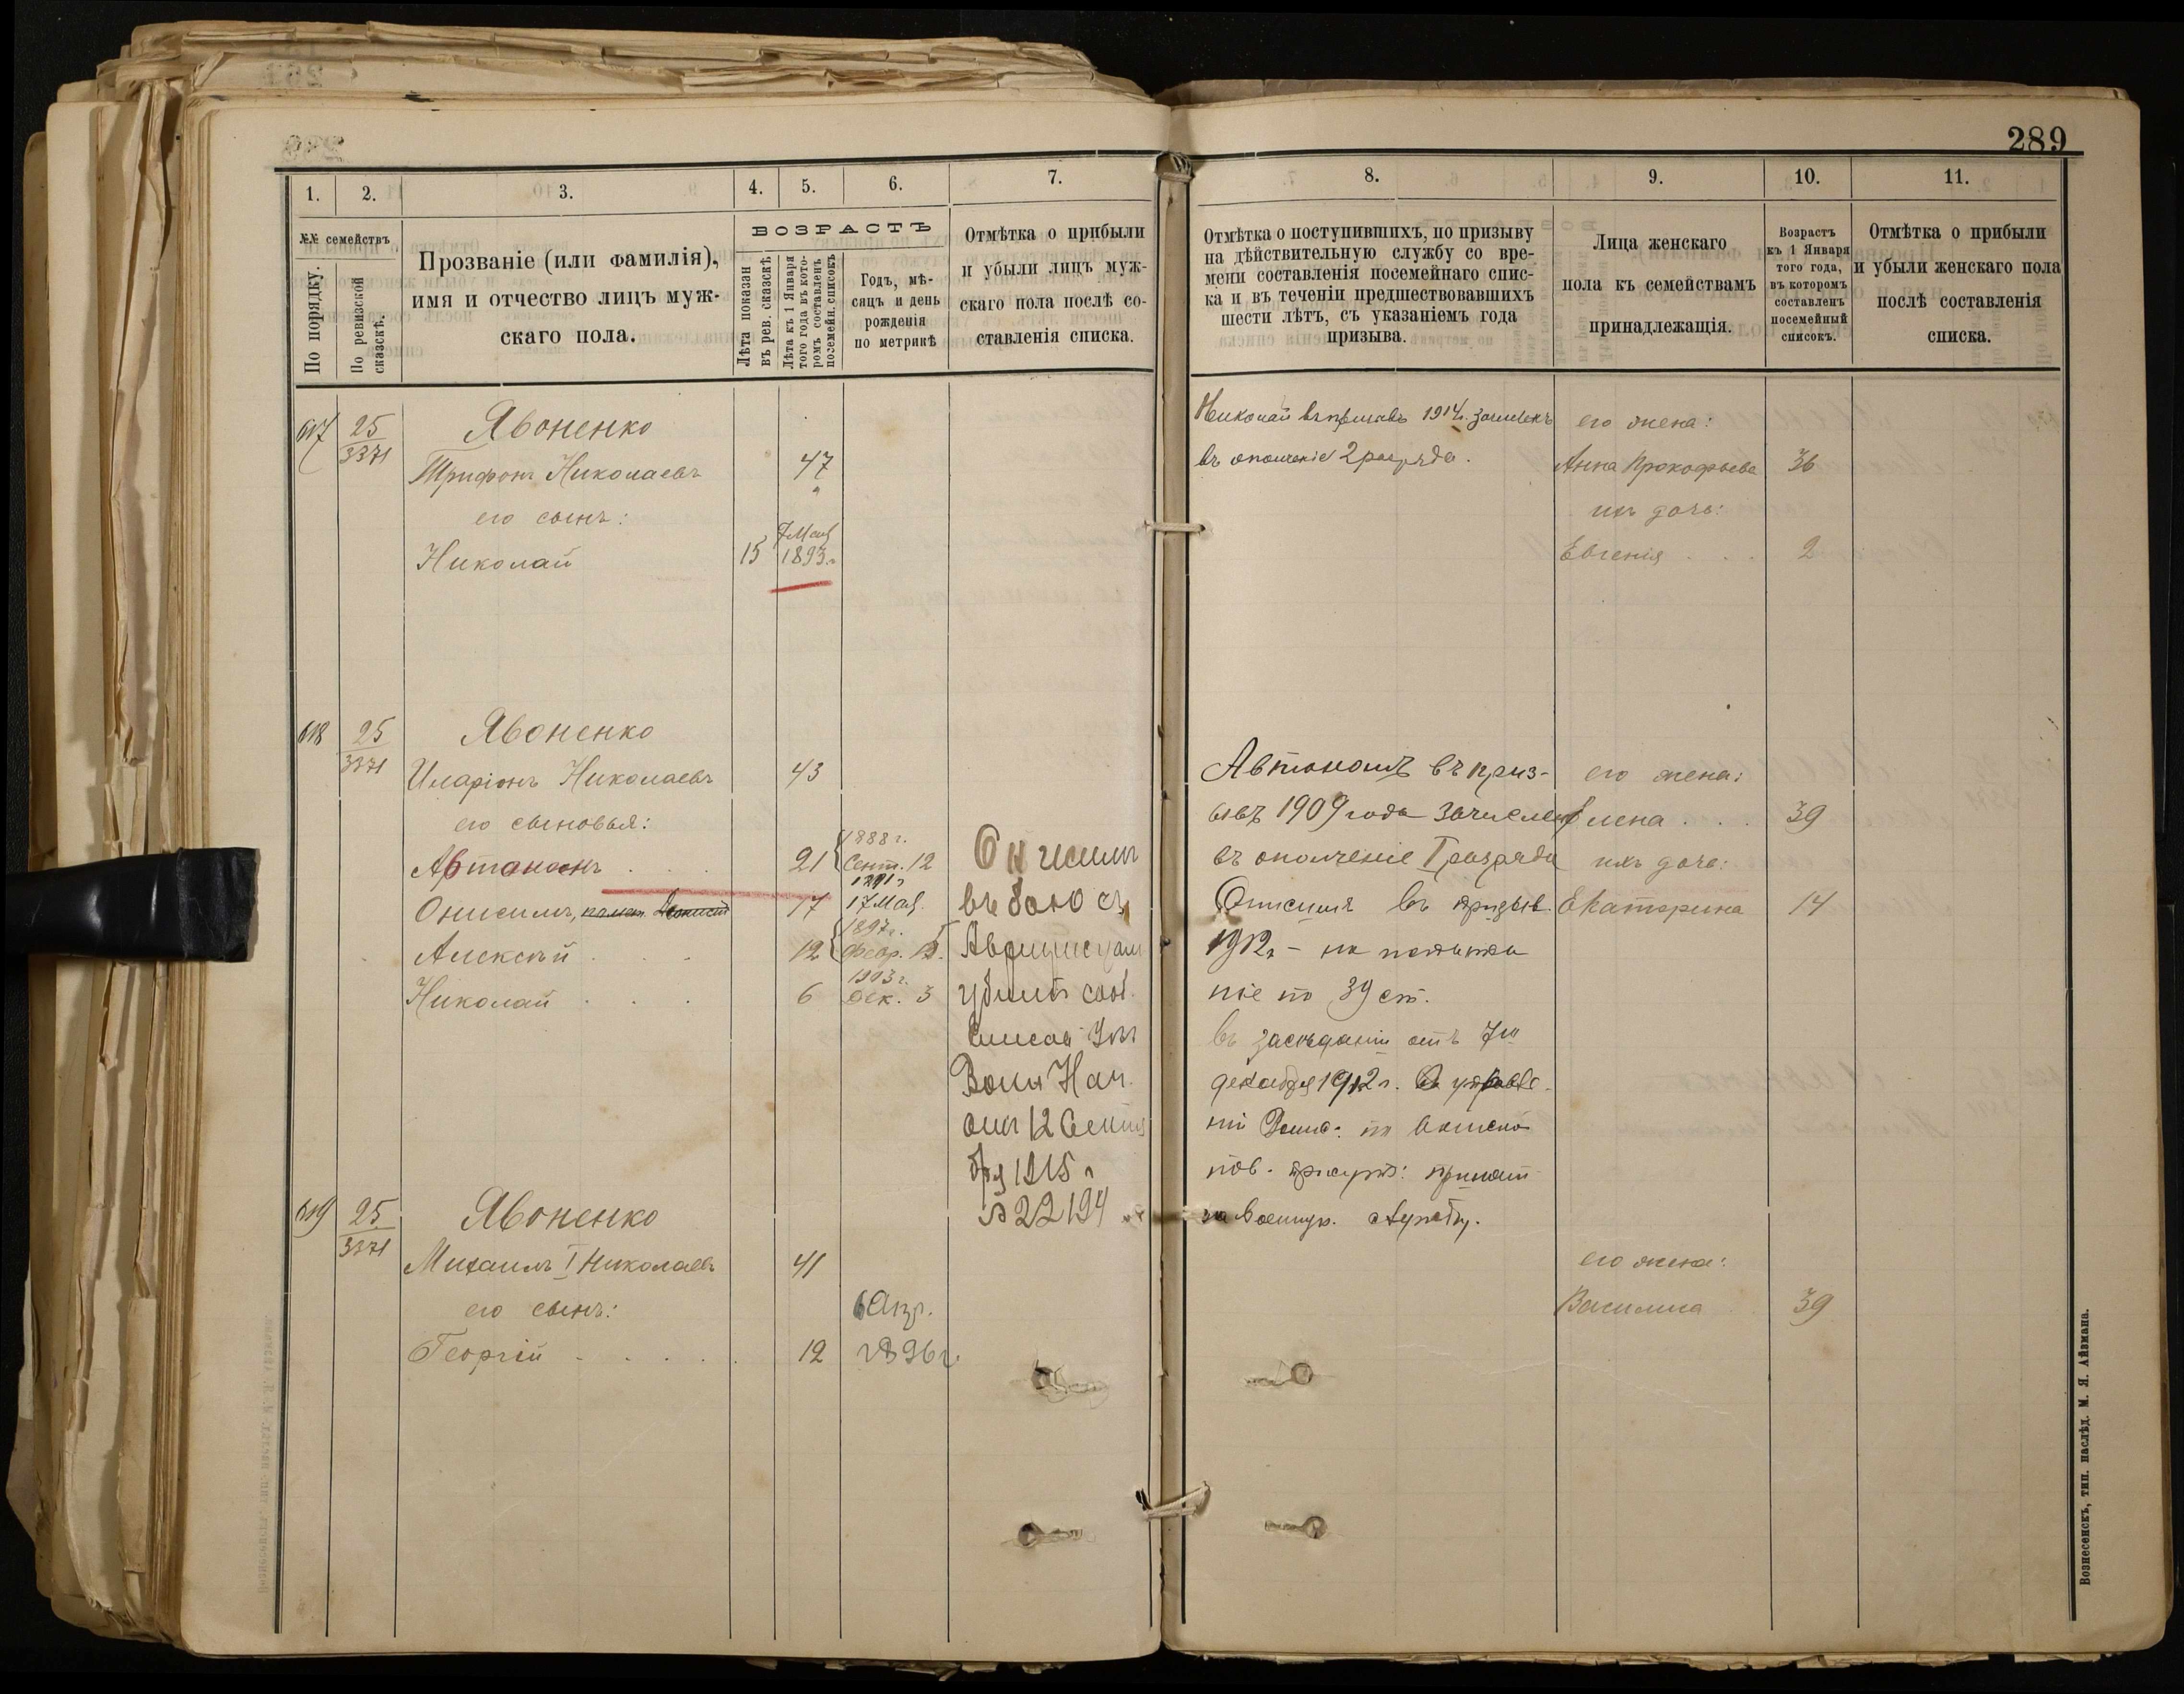 289
1.
2.
3.
4.
5.
6.
7.
8.
9.
10.
11.
№№ семействъ
По порядку.
По ревизской сказскѣ.
Прозваніе (или фамилія),
имя и отчество лицъ муж-
скаго пола.
ВОЗРАСТЪ
Лѣта показан
въ рев. сказскѣ
Лѣта къ 1 Января
того года въ кото-
ромъ составленъ
посемейн. списокъ
Годъ, мѣ-
сяцъ и день
рожденія
по метрикѣ
Отмѣтка о прибыли
и убыли лицъ муж-
скаго пола послѣ со-
ставленія списка.
Отмѣтка о поступившихъ, по призыву
на дѣйствительную службу со вре-
мени составленія посемейнаго спис-
ка и въ теченіи предшествовавшихъ
шести лѣтъ, съ указаніемъ года
призыва.
Лица женскаго
пола къ семействамъ
принадлежащія.
Возрастъ
къ 1 Января
того года,
въ которомъ
составленъ
посемейный
списокъ.
Отмѣтка о прибыли
и убыли женскаго пола
послѣ составленія
списка.
617 25/3371 Явоненко
Трифонъ Николаевъ 47
его сынъ:
Николай 15 7 Мая 1893 г.
Николай въ призывъ 1914 г. зачисленъ
въ ополченіе 2 разряда.
его жена:
Анна Прокофьева 36
ихъ дочь:
Евгенія 2
618 25/3371 Явоненко
Иларіонъ Николаевъ 43
его сыновья:
Автономъ 21 1888 г. Сент. 12
Онисимъ, 17 1891 г. 17 Мая.
Алексѣй 12 1897 г. Февр.
Николай 6 1903 г. Дек. 3
Онисимъ
въ бою съ
убитъ
отъ 12 Сентя
бря 1915 г
№ 22194
Автономъ въ приз-
ывъ 1909 года зачисленъ
въ ополченіе I разряда
Онисимъ въ призыв.
1912 г. - на
ніе по 39 ст.
въ засѣданіи отъ 7го
декабря 1912 г.
по воинской
пов. присут: принят
на военную службу.
его жена:
Елена 39
ихъ дочь:
Екатерина 14
619 25/3371 Явоненко
Михаилъ I Николаевъ 41
его сынъ:
Георгій 12 6 Апр. 1896 г.
его жена:
Василиса 39
Вознесенскъ, тип. наслѣд. М. Я. Айзмана.